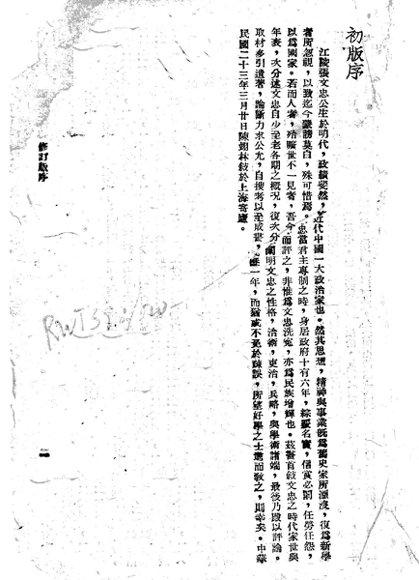 初版序
江陵張文忠公生於明代,政績斐然,近代中國一大政治家也。然其思想,精神與事業既為舊史家所湮沒,復為新學
者所忽視,以致迄今蒙謗莫白,殊可惜焉。忠當君主專制之時,身居政府十有六年,綜覈名實,信賞必罰,任勞任怨,
以為國家。若而人者,殆曠世不一見者,吾今而評之,非惟為文忠洗冤,亦為民族增輝也。茲篇首敍文忠之時代家世與
年表,次分述文忠自少至老各期之概況,復次分闡明文忠之性格,治術,吏治,兵略,與學術諸端,最後乃殿以評論。
取材多引遺著,論斷力求公允,自搜考以至成書,雖一年,而猶或不免於疎誤,所望好學之士進而敎之,則幸矣。中華
民國二十三年三月廿日陳翊林敍於上海寄廬。
修訂版序
一